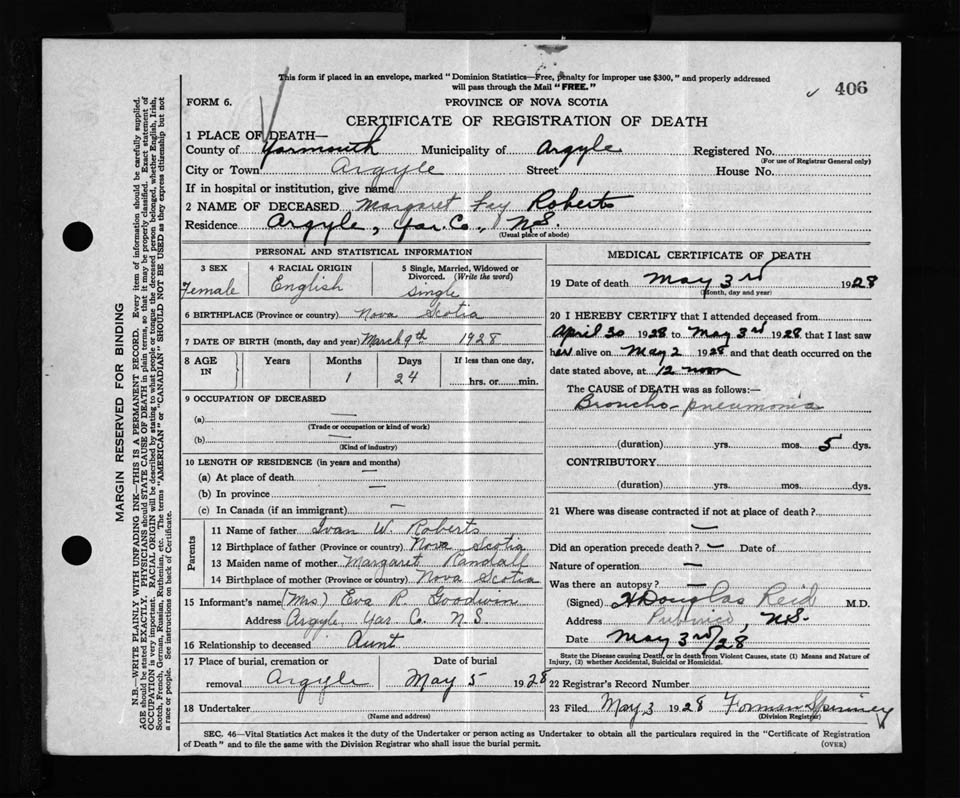 This form if placed in an envelope, marked "Dominion Statistics—Free, penalty for improper use $300," and properly addressed
will pass through the Mail "FREE."
406
FORM 6.
PROVINCE OF NOVA SCOTIA
CERTIFICATE OF REGISTRATION OF DEATH
1 PLACE OF DEATH—
County of Yarmouth Municipality of Argyle Registered No.
(For use of Registrar General only)
City or Town Argyle Street House No.
If in hospital or institution, give name
2 NAME OF DECEASED Margaret Fay Roberts
Residence Argyle, Yar. Co., N.S.
(Usual place of abode)
PERSONAL AND STATISTICAL INFORMATION
3 SEX 4 RACIAL ORIGIN 5 Single, Married, Widowed or
Divorced. (Write the word)
Female English Single
6 BIRTHPLACE (Province or country) Nova Scotia
7 DATE OF BIRTH (month, day and year) March 9th 1928
8 AGE IN Years Months Days If less than one day,
1 24 hrs. or min.
9 OCCUPATION OF DECEASED
(a) —
(Trade or occupation or kind of work)
(b) —
(Kind of industry)
10 LENGTH OF RESIDENCE (in years and months)
(a) At place of death —
(b) In province —
(c) In Canada (if an immigrant) —
Parents
11 Name of father Ivan W. Roberts
12 Birthplace of father (Province or country) Nova Scotia
13 Maiden name of mother Margaret Randall
14 Birthplace of mother (Province or country) Nova Scotia
15 Informant's name (Mrs) Eva R. Goodwin
Address Argyle, Yar. C. N.S.
16 Relationship to deceased Aunt
17 Place of burial, cremation or Date of burial
removal Argyle May 5 1928
18 Undertaker
(Name and address)
MEDICAL CERTIFICATE OF DEATH
19 Date of death May 3rd 1928
(Month, day and year)
20 I HEREBY CERTIFY that I attended deceased from
April 30 1928 to May 3rd 1928 that I last saw
her alive on May 2 1928 and that death occurred on the
date stated above, at 12 noon
The CAUSE of DEATH was as follows:—
Broncho pneumonia
(duration) yrs. mos. 5 dys.
CONTRIBUTORY
(duration) yrs. mos. dys.
21 Where was disease contracted if not at place of death?
—
Did an operation precede death? — Date of
Nature of operation —
Was there an autopsy? —
(Signed) H Douglas Reid M.D.
Address Pubnico, N.S.
Date May 3rd/28
State the Disease causing Death, or in death from Violent Causes, state (1) Means and Nature of
Injury, (2) whether Accidental, Suicidal or Homicidal.
22 Registrar's Record Number
23 Filed May 3 1928 Forman Spinney
(Division Registrar)
SEC. 46—Vital Statistics Act makes it the duty of the Undertaker or person acting as Undertaker to obtain all the particulars required in the "Certificate of Registration
of Death" and to file the same with the Division Registrar who shall issue the burial permit. (OVER)
MARGIN RESERVED FOR BINDING
N.B.—WRITE PLAINLY WITH UNFADING INK—THIS IS A PERMANENT RECORD. Every item of information should be carefully supplied.
AGE should be stated EXACTLY. PHYSICIANS should STATE CAUSE OF DEATH in plain terms, so that it may be properly classified. Exact statement of
OCCUPATION is very important. RACIAL ORIGIN will be described by stating to what people or tongue the deceased person belonged, whether English, Irish,
Scotch, French, German, Russian, Ruthenian, etc. The terms "AMERICAN" or "CANADIAN" SHOULD NOT BE USED as they express citizenship but not
a race or people. See instructions on back of Certificate.